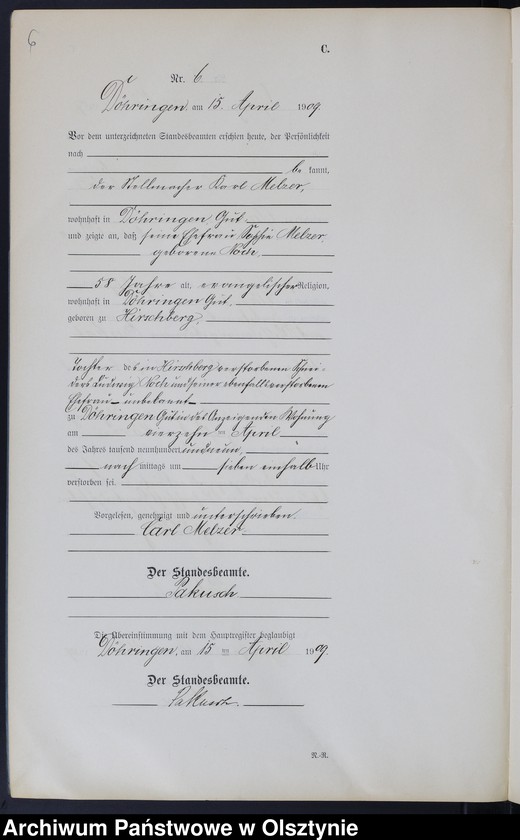 6
C.
Nr. 6
Döhringen, am 15. April 1909
Vor dem unterzeichneten Standesbeamten erschien heute, der Persönlichkeit
nach
be kannt,
der Stellmacher Karl Melzer,
wohnhaft in Döhringen Gut
und zeigte an, daß seine Ehefrau Sophie Melzer
geborene Noch,
58 Jahre alt, evangelischer Religion,
wohnhaft in Döhringen Gut,
geboren zu Hirschberg,
Tochter des in Hirschberg verstorbenen Schnei-
ders Ludwig Noch und seiner ebenfalls verstorbenen
Ehefrau – unbekannt –
zu Döhringen Gut in des Anzeigenden Wohnung
am vierzehn ten April
des Jahres tausend neunhundert und neun,
nach mittags um sieben einhalb Uhr
verstorben sei.
Vorgelesen, genehmigt und unterschrieben.
Carl Melzer
Der Standesbeamte.
Pakusch
Die Übereinstimmung mit dem Hauptregister beglaubigt
Döhringen, am 15 ten April 1909.
Der Standesbeamte.
Pakusch.
N.-R.
Archiwum Państwowe w Olsztynie